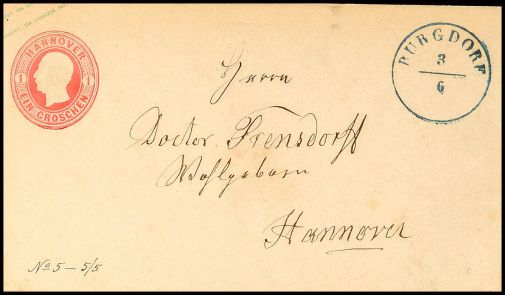 HANNOVER
1 1
EIN GROSCHEN
BURGDORF
3
6
Herrn
Doctor Frensdorff
Wohlgeborn
Hannover
No 5 - 5/5